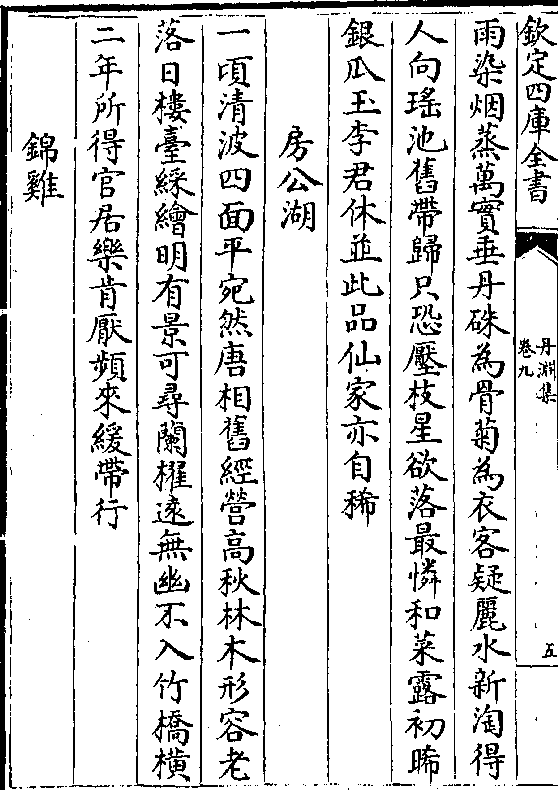 欽定四庫全書
丹淵集
卷九
五
雨染烟蒸萬實垂丹硃為骨菊為衣客疑麗水新淘得
人向瑤池舊帶歸只恐壓枝星欲落最憐和葉露初晞
銀瓜玉李君休並此品仙家亦自稀
房公湖
一頃清波四面平宛然唐相舊經營高秋林木形容老
落日樓臺綵繪明有景可尋蘭櫂遠無幽不入竹橋橫
二年所得官居樂肯厭頻來緩帶行
錦雞